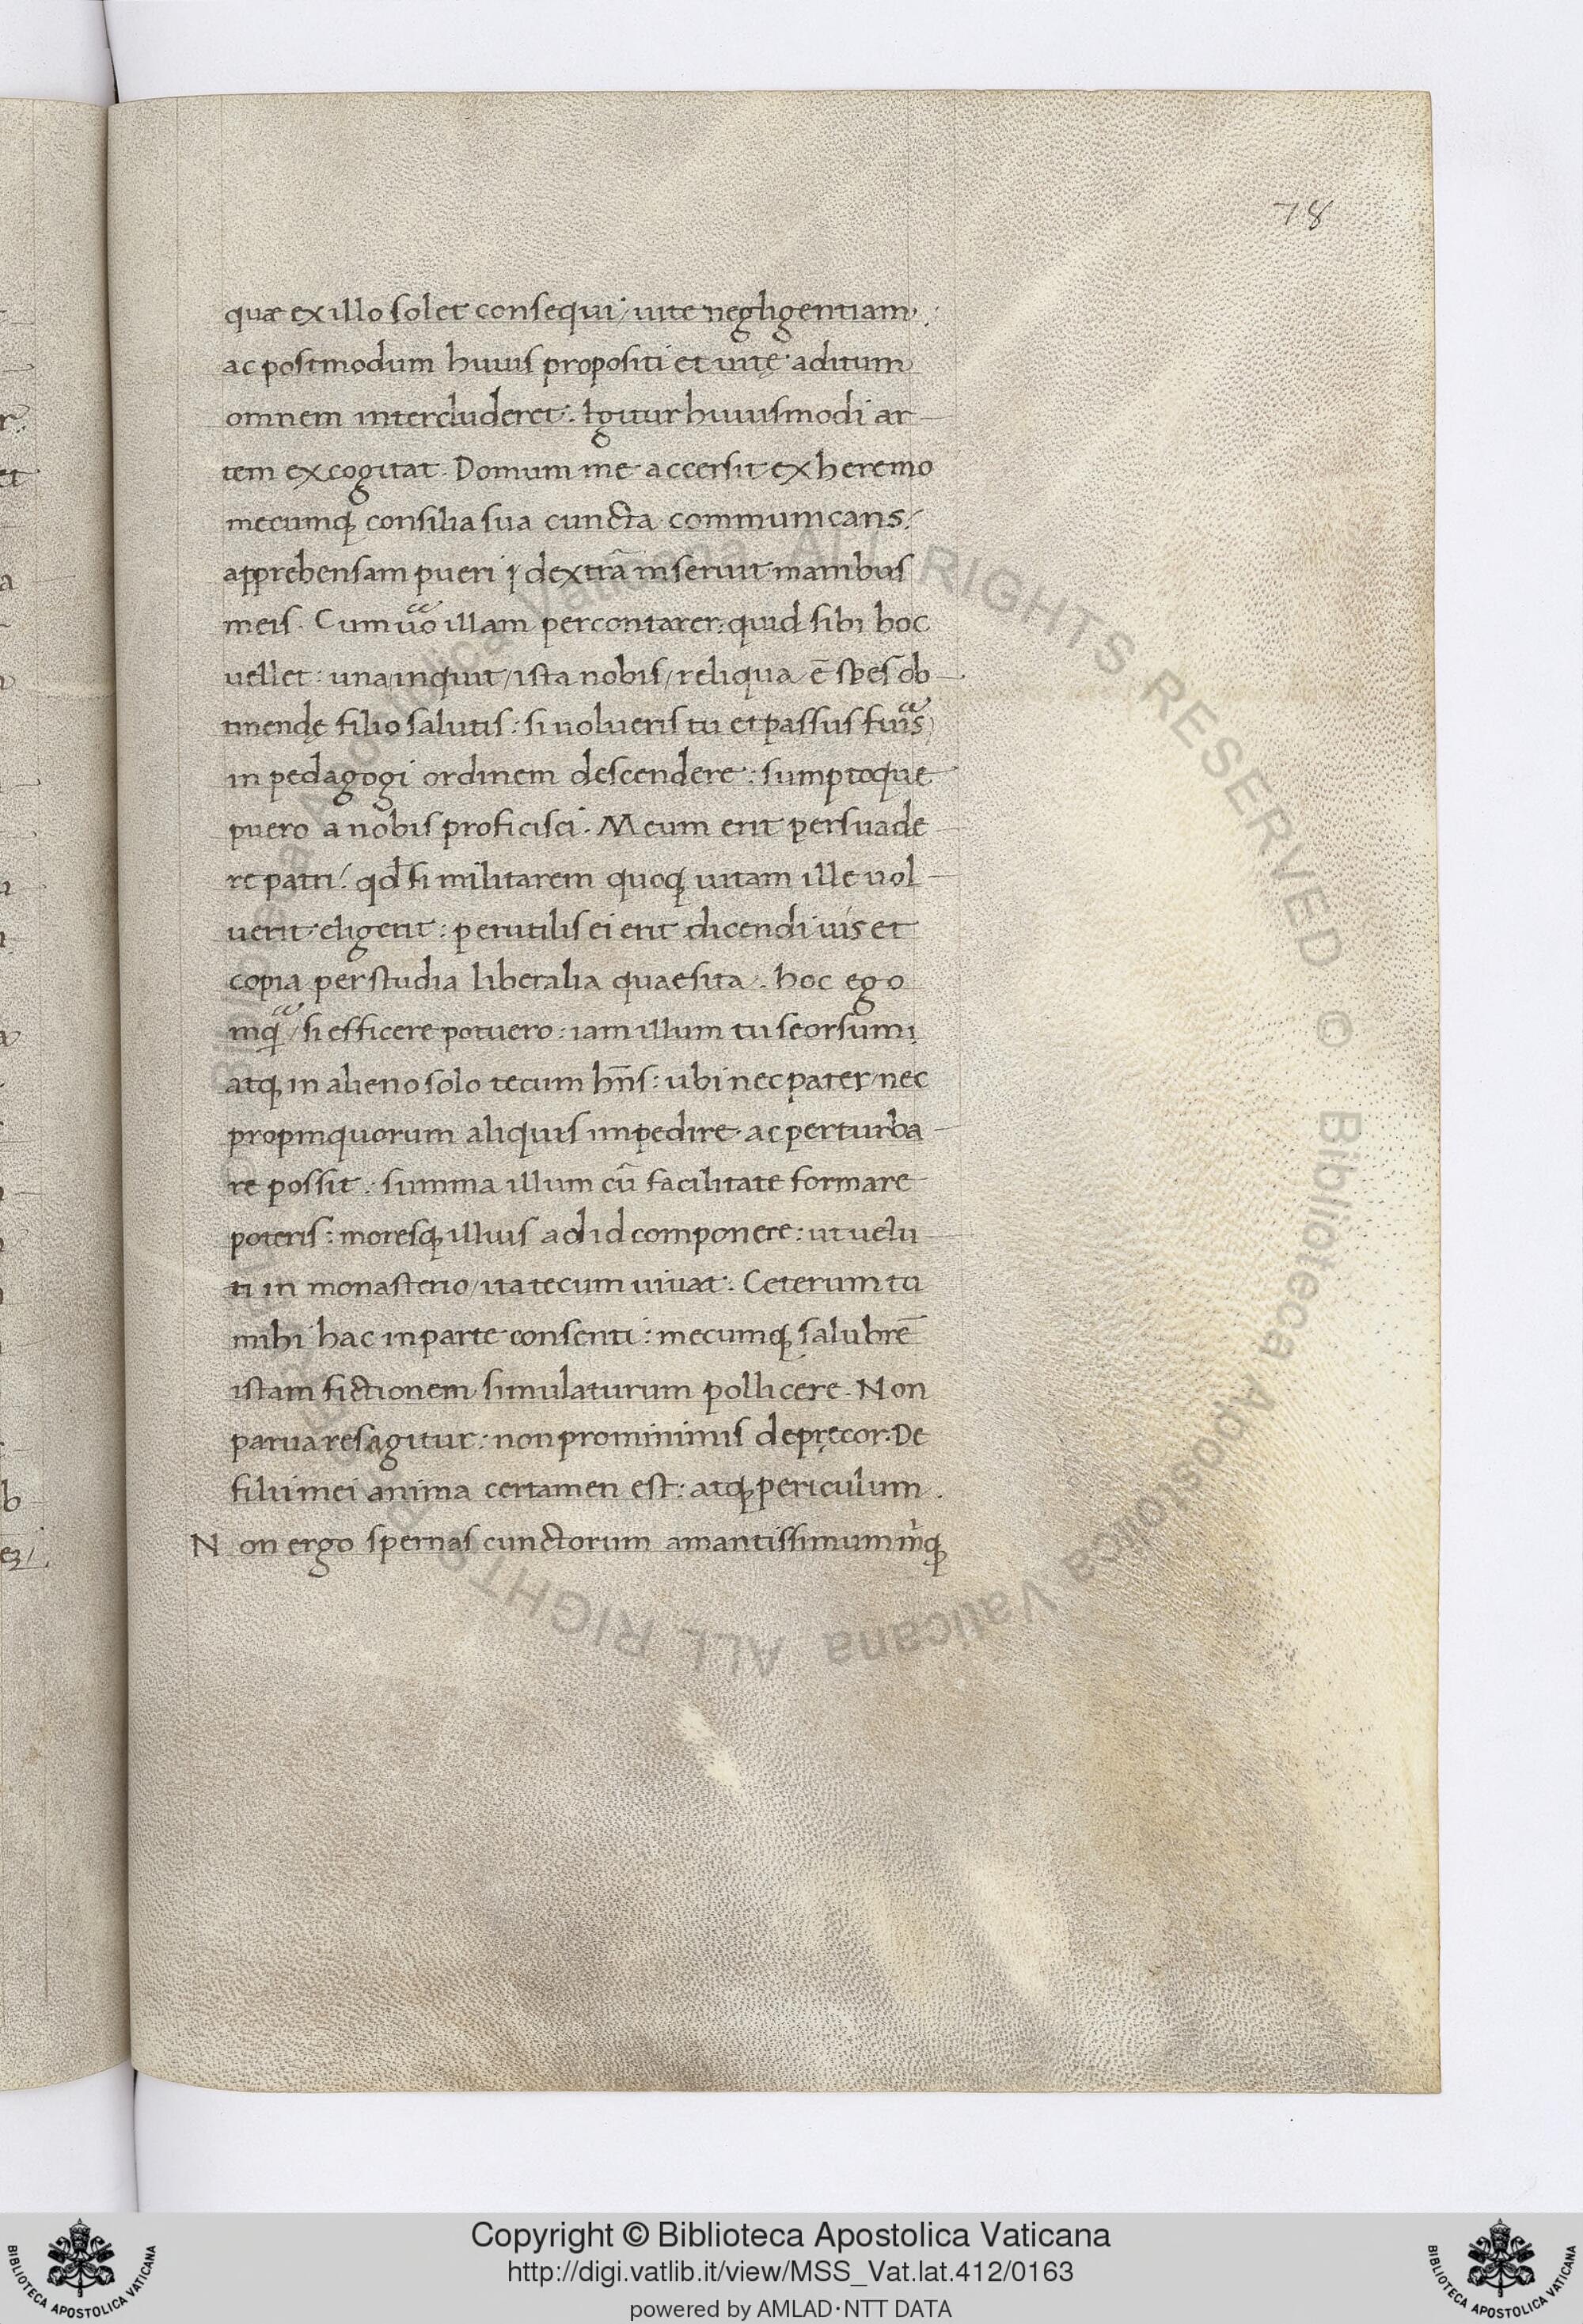 78
quæ ex illo solet consequi / uite negligentiam .
ac postmodum huius propositi et uitę aditum
omnem intercluderet : Igitur huiusmodi ar
tem excogitat . Domum me accersit ex heremo
mecumq; consilia sua cuncta communicans /
apprehensam pueri dextrā inseruit manibus
meis . Cum uo illam percontarer : quid sibi hoc
uellet : una inquit / ista nobis / reliqua ē spes ob
tinendę filio salutis : si uolueris tu et passus fuis
in pedagogi ordinem descendere : sumptoque
puero a nobis proficisci . Meum erit persuade
re patri / qđ si militarem quoq; uitam ille uol
uerit eligerit : perutilis ei erit dicendi uis et
copia per studia liberalia quaesita . hoc ego
inq̃ / si efficere potuero : iam illum tu seorsum
atq; in alieno solo tecum hn̄s : ubi nec pater / nec
propinquorum aliquis impedire ac perturba
re possit : summa illum cū facilitate formare
poteris : moresq; illius ad id componere : ut uelu
ti in monasterio / ita tecum uiuat . Ceterum tu
mihi hac in parte consenti : mecumq; salubrē
istam fictionem simulaturum pollicere . Non
parua res agitur : non pro minimis depręcor . De
filii mei anima certamen est : atq; periculum .
Non ergo spernas cunctorum amantissimum m̄q;
© Biblioteca Apostolica Vaticana ALL RIGHTS RESERVED
Copyright © Biblioteca Apostolica Vaticana
http://digi.vatlib.it/view/MSS_Vat.lat.412/0163
powered by AMLAD·NTT DATA
BIBLIOTECA APOSTOLICA VATICANA
BIBLIOTECA APOSTOLICA VATICANA